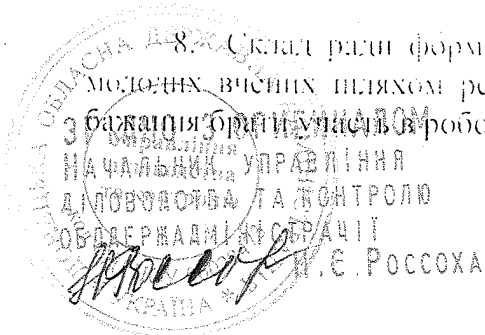 8. Склад ради форм
молодих вчених шляхом ре
бажання брати участь в робо
ЗГІДНО З ОРИГІНАЛОМ
НАЧАЛЬНИК УПРАВЛІННЯ
ДІЛОВОДСТВА ТА КОНТРОЛЮ
ОБЛДЕРЖАДМІНІСТРАЦІЇ
Н.Є.РОССОХА
ОБЛАСНА ДЕРЖАВНА
УКРАЇНА